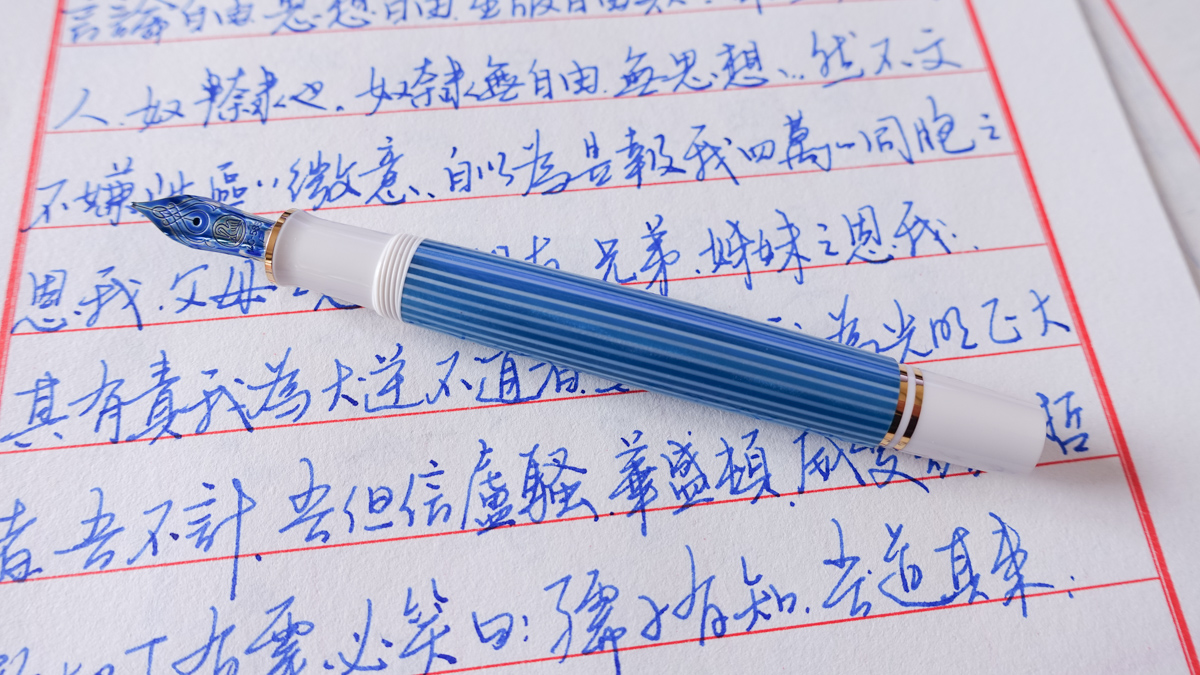 言論自由思想自由出版自由
人奴隸也.奴隸無自由.無思想.然不文
不嫌 區 微意、自以為是報我四萬 同胞之
恩我.父母之恩 兄弟.姊妹之恩我.
其有責我為大逆不道者. 為光明正大
者吾不計.吾但信盧騷.華盛頓.威 哲
有靈.必笑曰：孺子有知.吾道其東.